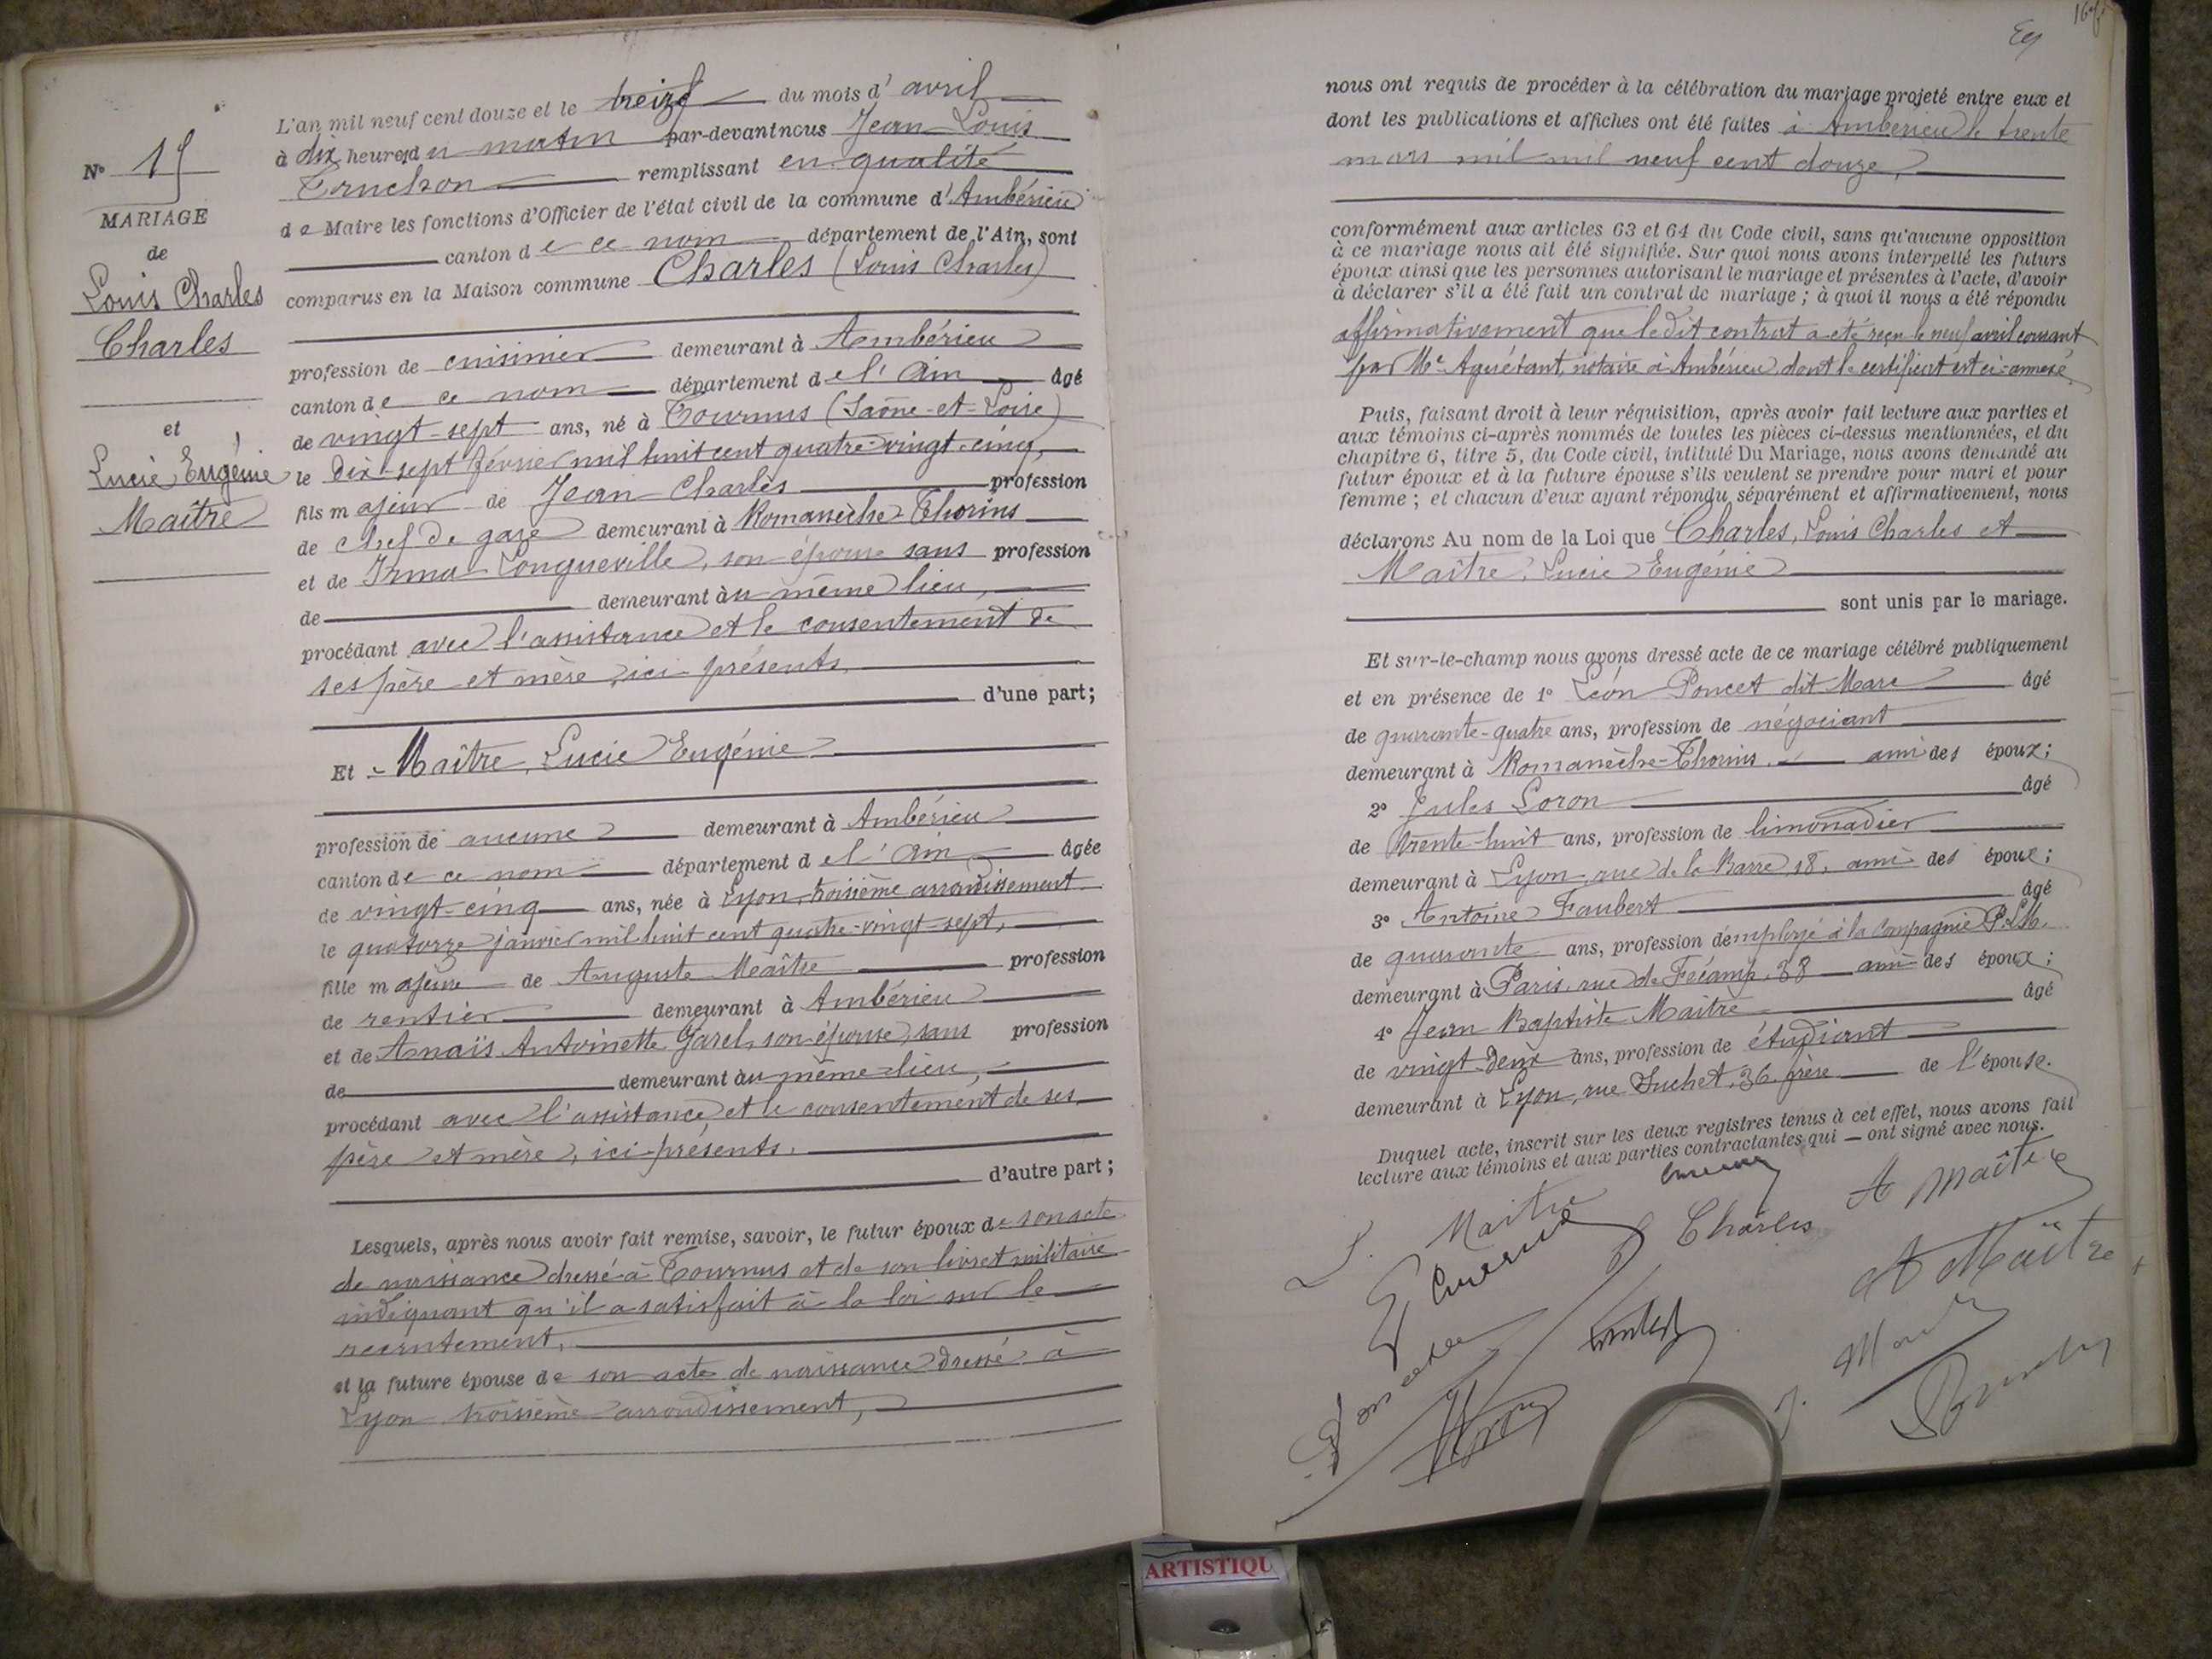 N° 15
MARIAGE
de
Louis Charles
Charles
et
Lucie Eugénie
Maître
L'an mil neuf cent douze et le treize du mois d'avril
à dix heures du matin par-devant nous Jean Louis
Truchon remplissant en qualité
de Maire les fonctions d'Officier de l'état civil de la commune d'Ambérieu
canton de ce nom département de l'Ain, sont
comparus en la Maison commune Charles (Louis Charles)
profession de cuisinier demeurant à Ambérieu
canton de ce nom département de l'Ain âgé
de vingt-sept ans, né à Tournus (Saône-et-Loire)
le dix-sept février mil huit cent quatre-vingt-cinq,
fils majeur de Jean Charles profession
de chef de gare demeurant à Romanèche-Thorins
et de Irma Longueville, son épouse sans profession
de demeurant au même lieu,
procédant avec l'assistance et le consentement de
ses père et mère, ici présents,
d'une part;
Et Maître, Lucie Eugénie
profession de aucune demeurant à Ambérieu
canton de ce nom département de l'Ain âgée
de vingt-cinq ans, née à Lyon, troisième arrondissement
le quatorze janvier mil huit cent quatre-vingt-sept,
fille majeure de Auguste Maître profession
de rentier demeurant à Ambérieu
et de Anaïs Antoinette Garel, son épouse, sans profession
de demeurant au même lieu,
procédant avec l'assistance et le consentement de ses
père et mère, ici présents.
d'autre part;
Lesquels, après nous avoir fait remise, savoir, le futur époux de son acte
de naissance dressé à Tournus et de son livret militaire
indiquant qu'il a satisfait à la loi sur le
recrutement,
et la future épouse de son acte de naissance dressé à
Lyon troisième arrondissement,
nous ont requis de procéder à la célébration du mariage projeté entre eux et
dont les publications et affiches ont été faites à Ambérieu le trente
mars mil mil neuf cent douze,
conformément aux articles 63 et 64 du Code civil, sans qu'aucune opposition
à ce mariage nous ait été signifiée. Sur quoi nous avons interpellé les futurs
époux ainsi que les personnes autorisant le mariage et présentes à l'acte, d'avoir
à déclarer s'il a été fait un contrat de mariage; à quoi il nous a été répondu
affirmativement que ledit contrat a été reçu le neuf avril courant
par Me Aguétant, notaire à Ambérieu, dont le certificat est ci-annexé.
Puis, faisant droit à leur réquisition, après avoir fait lecture aux parties et
aux témoins ci-après nommés de toutes les pièces ci-dessus mentionnées, et du
chapitre 6, titre 5, du Code civil, intitulé Du Mariage, nous avons demandé au
futur époux et à la future épouse s'ils veulent se prendre pour mari et pour
femme; et chacun d'eux ayant répondu séparément et affirmativement, nous
déclarons Au nom de la Loi que Charles, Louis Charles et
Maître, Lucie Eugénie
sont unis par le mariage.
Et sur-le-champ nous avons dressé acte de ce mariage célébré publiquement
et en présence de 1° Léon Poncet dit Marc âgé
de quarante-quatre ans, profession de négociant
demeurant à Romanèche-Thorins, ami des époux;
2° Jules Loron âgé
de trente-huit ans, profession de limonadier
demeurant à Lyon, rue de la Barre, 18, ami des époux;
3° Antoine Faubert âgé
de quarante ans, profession d'employé à la Compagnie P.L.M.
demeurant à Paris, rue de Fécamp, 38 ami des époux;
4° Jean Baptiste Maitre âgé
de vingt-deux ans, profession de étudiant
demeurant à Lyon, rue Suchet, 36, frère de l'épouse.
Duquel acte, inscrit sur les deux registres tenus à cet effet, nous avons fait
lecture aux témoins et aux parties contractantes qui — ont signé avec nous.
L. Maitre
Charles
A Maître
A Maître
ARTISTIQU